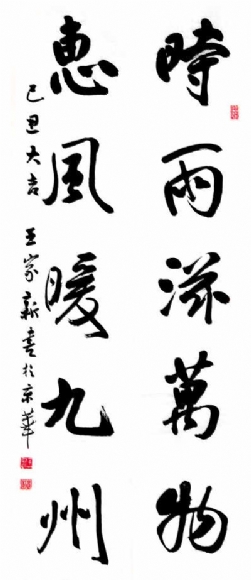 時雨滋萬物
惠風暖九州
己丑大吉 王家新書於京華